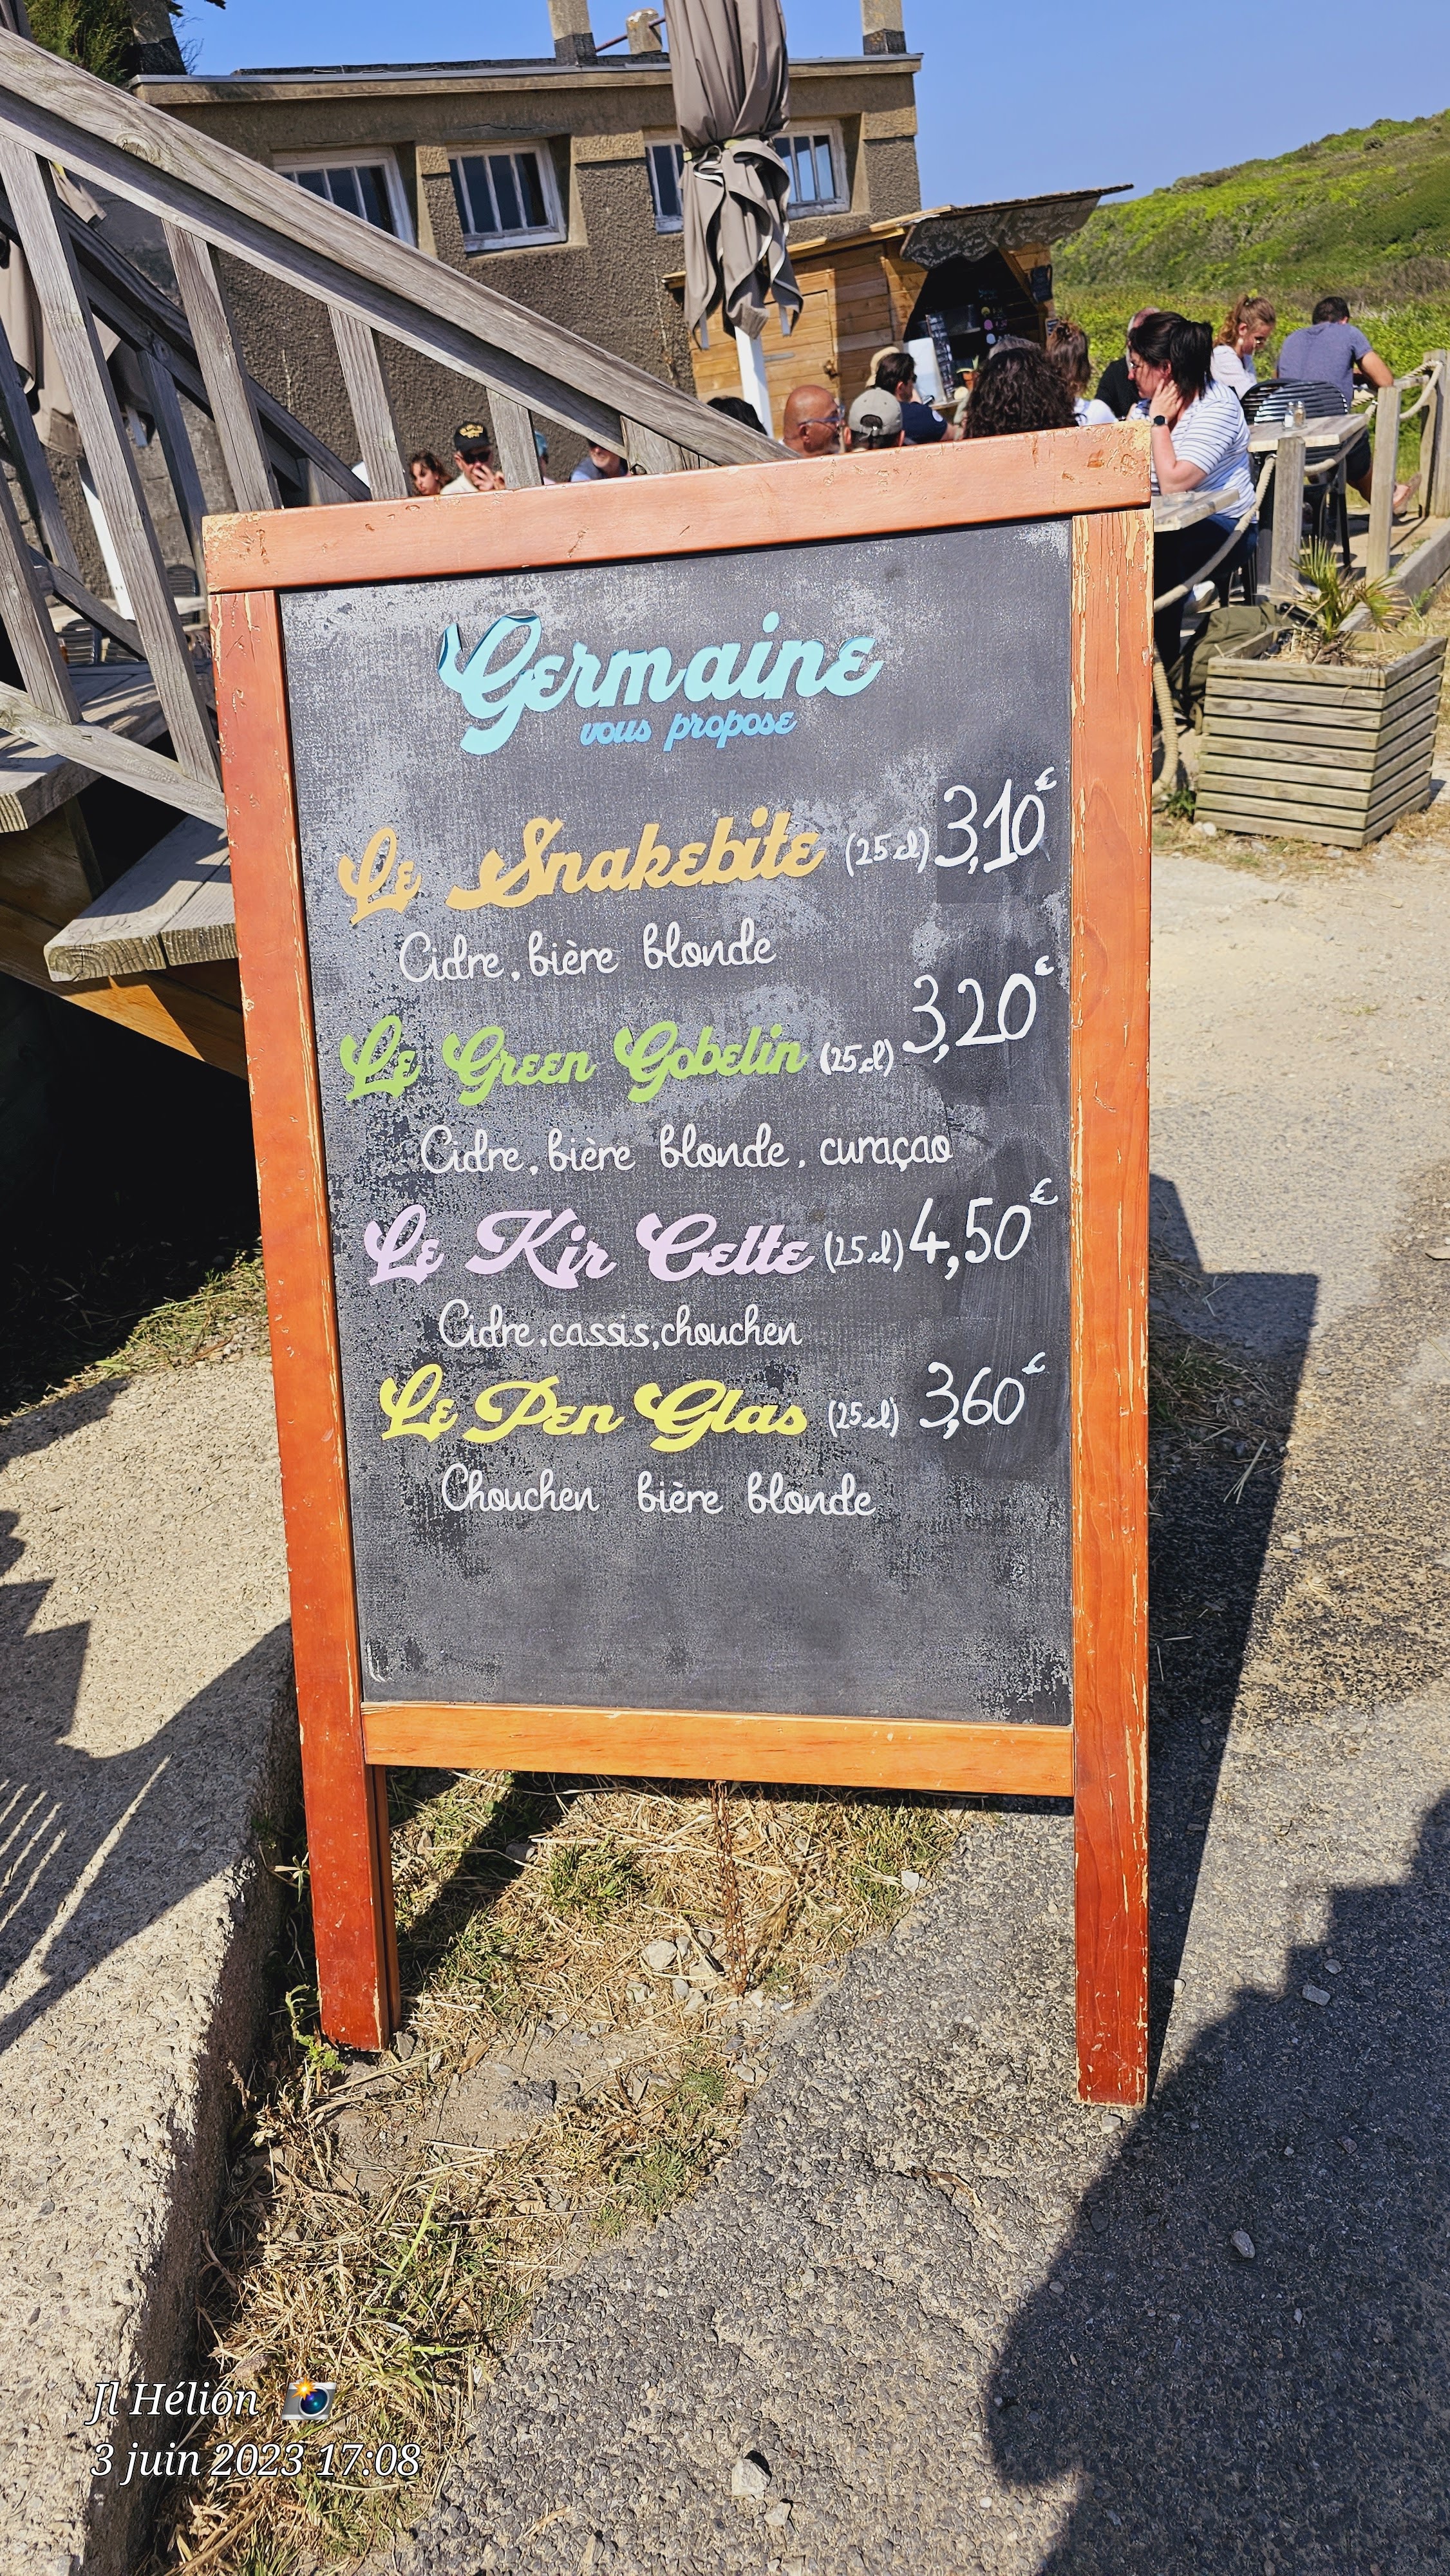 Germaine
vous propose
Le Snakebite (25cl) 3,10€
Cidre, bière blonde
Le Green Gobelin (25cl) 3,20€
Cidre, bière blonde, curaçao
Le Kir Celte (25cl) 4,50€
Cidre, cassis, chouchen
Le Pen Glas (25cl) 3,60€
Chouchen bière blonde
Jl Hélion
3 juin 2023 17:08